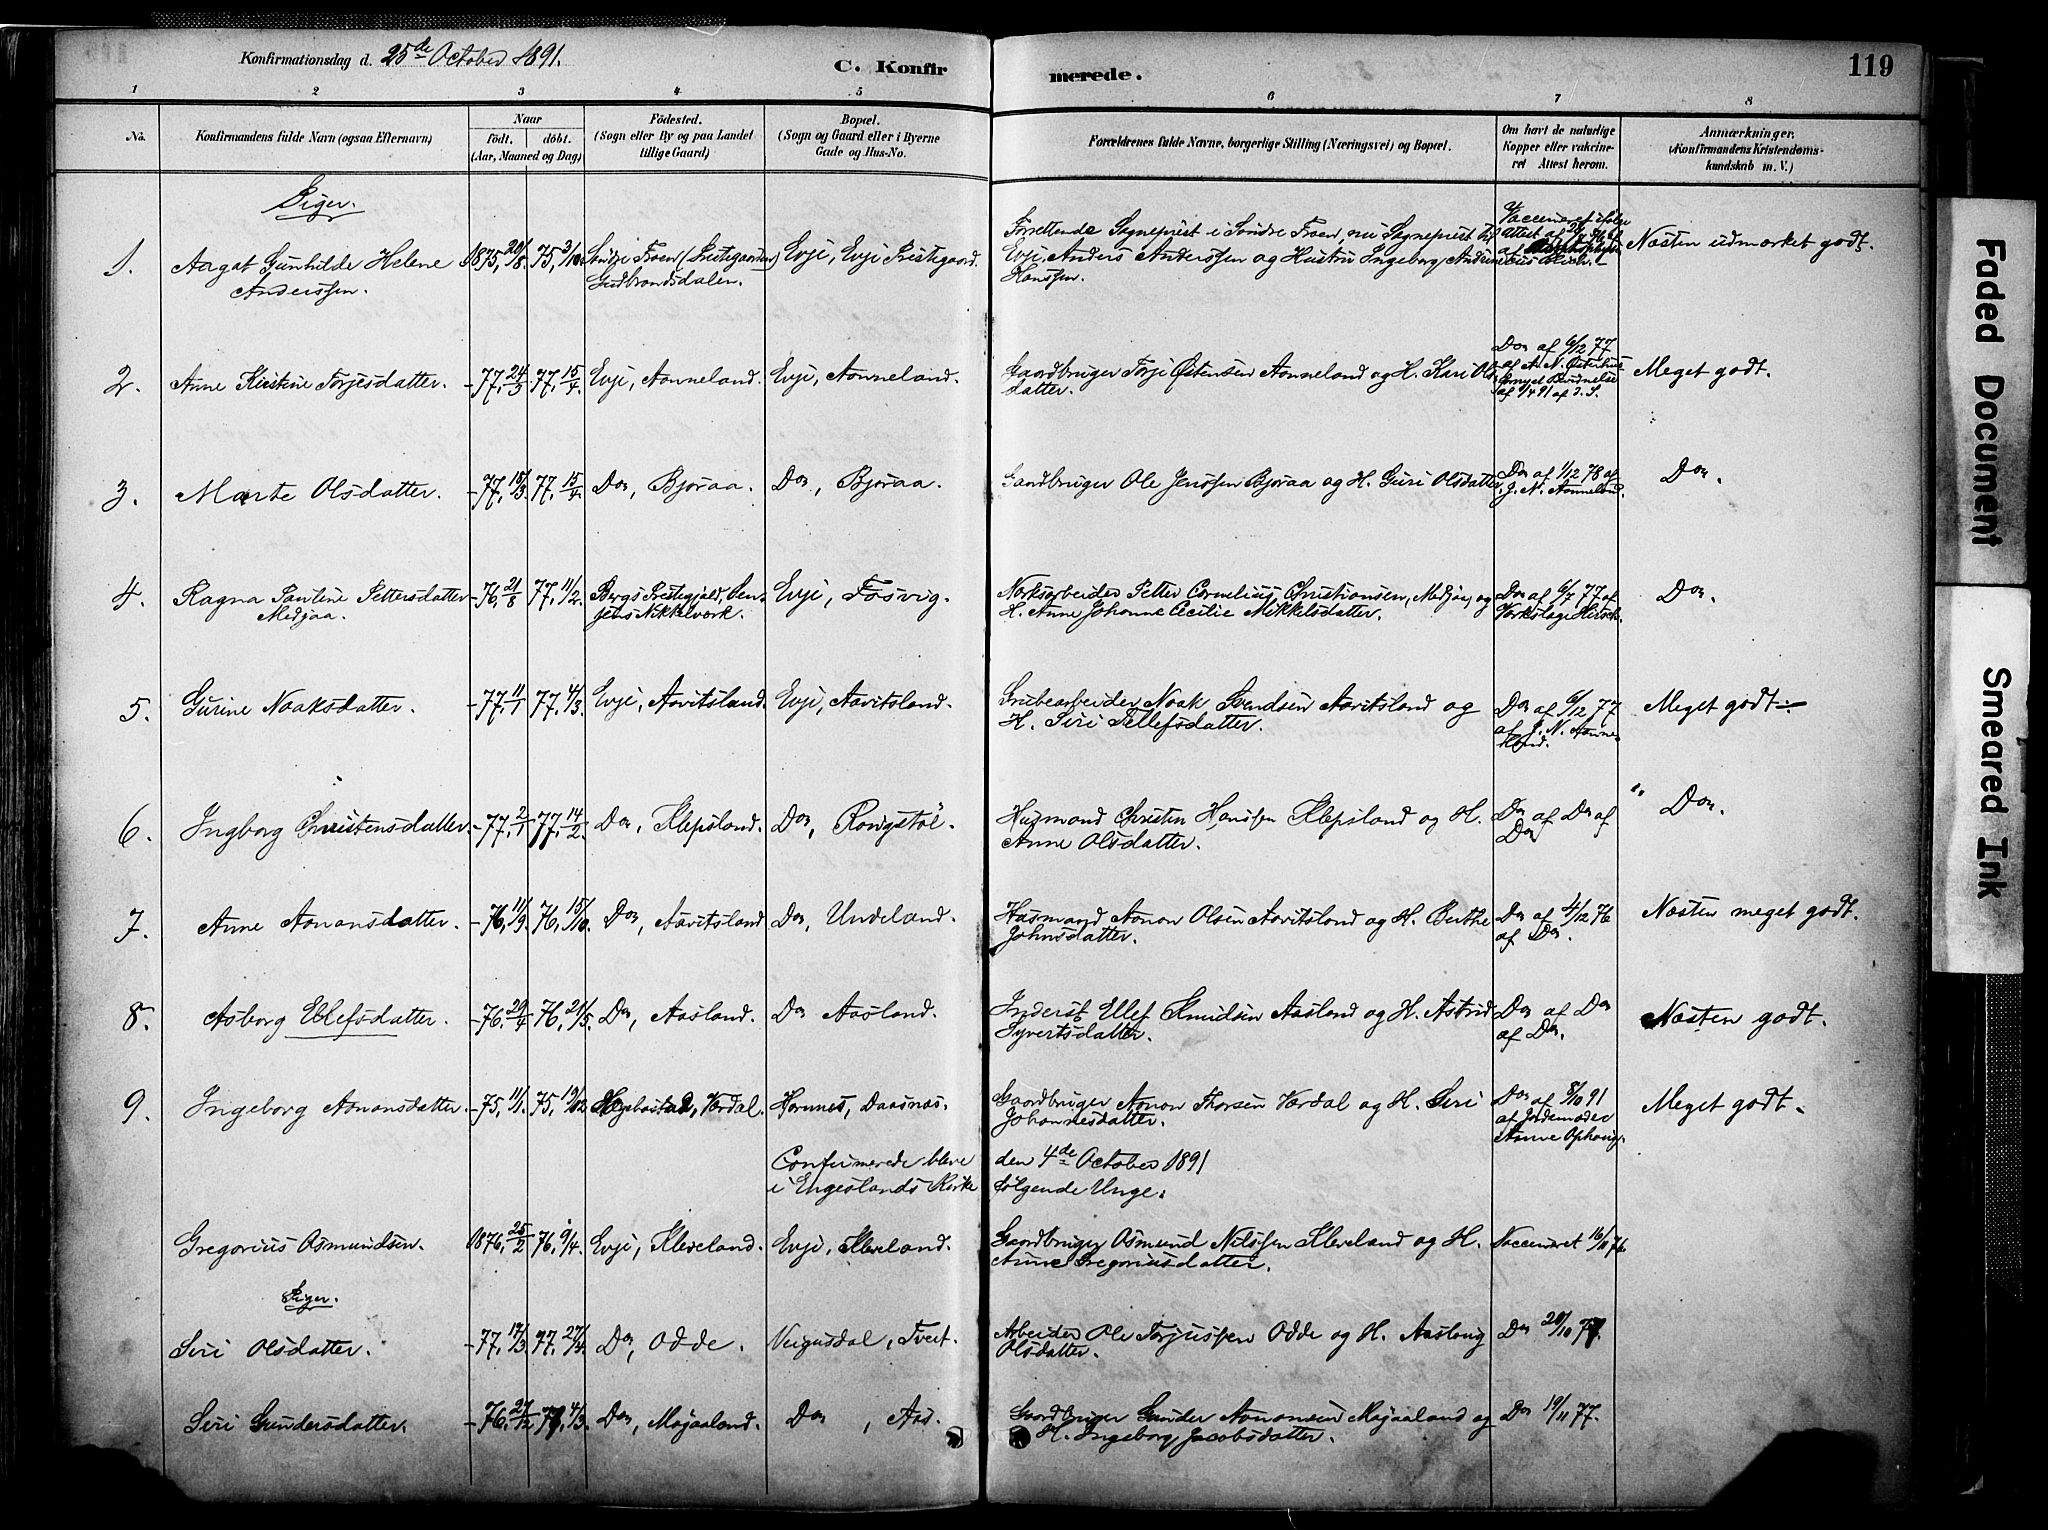 Konfirmationsdag d. 25de October 1891.
C. Konfirmerede.
119
1 2 3 4 5 6 7 8
No.
Konfirmandens fulde Navn (ogsaa Efternavn)
Naar
født. døbt.
(Aar, Maaned og Dag)
Fødested.
(Sogn eller By og paa Landet
tillige Gaard)
Bopæl.
(Sogn og Gaard eller i Byerne
Gade og Hus-No.
Forældrenes fulde Navne, borgerlige Stilling (Næringsvei) og Bopæl.
Om havt de naturlige
Kopper eller vakcine-
ret Attest herom.
Anmærkninger.
(Konfirmandens Kristendoms-
kundskab m. V.)
Piger.
1. Aagot Gunhilde Helene 1875, 20/8. 75, 3/10 Søndre Froen (Prestegaarden) Evje, Evje Prestgaard.
Anderssen. Gudbrandsdalen.
Forrettende Sogneprest i Søndre Froen, nu Sogneprest til
Evje, Anders Anderssen og Hustru Ingeborg Andrine
Hanssen.
Vaccineret ifølge
Attest af
Næsten udmærket godt.
2. Anne Kirstine Torjesdatter. -77, 24/3 77, 15/4 Evje, Aanneland. Evje, Aanneland.
Gaardbruger Torje Østensen Aanneland og H. Kari Ols-
datter.
Do af 6/12 77
af A. N. Østerhus
Fornyet Bevidnelse
af 1/4 91 af J. S.
Meget godt.
3. Marte Olsdatter. -77, 15/3 77, 15/4 Do, Bjoraa. Do, Bjoraa.
Gaardbruger Ole Jenssen Bjoraa og H. Guri Olsdatter
Do af 1/12 78 af
J. N. Aanneland.
Do.
4. Ragna Pauline Pettersdatter -76, 21/8 77, 11/2 Bergs Prestegjeld, Sen- Evje, Fosvig.
Medjaa. jens Nikkelværk.
Værksarbeider Petter Cornelius Christiansen, Medjaa, og
H. Anne Johanne Cecilie Mikkelsdatter.
Do af 6/7 77 af
Værkslæge Hirsch.
Do.
5. Gurine Noaksdatter. -77, 11/1 77, 4/3 Evje, Aavitsland. Evje, Aavitsland.
Grubearbeider Noak Svendsen Aavitsland og
H. Siri Tellefsdatter.
Do af 6/12 77
af J. N. Aanne-
land.
Meget godt.
6. Ingborg Christensdatter -77, 2/1 77, 14/2 Do, Klepsland. Do, Rovgstøl.
Husmand Christen Hanssen Klepsland og H.
Anne Olsdatter.
Do af Do af
Do
Do.
7. Anne Aanonsdatter. -76, 11/9 76, 15/10 Do, Aavitsland Do, Undeland.
Husmand Aanon Olsen Aavitsland og H. Berthe
Johnsdatter.
Do af 4/12 76
af Do.
Næsten meget godt.
8. Aasborg Ellefsdatter. -76, 20/4 76, 21/5 Do, Aasland. Do Aasland.
Inderst Ellef Knudsen Aasland og H. Astrid
Syvertsdatter.
Do af Do
af Do.
Næsten godt.
9. Ingeborg Aanonsdatter. -75, 11/1 75, 19/12 Hægebostad, Vordal. Hornnes, Daasnæs.
Gaardbruger Aanon Thorsen Vordal og H. Siri
Johannesdatter.
Do af 8/10 91
af Jordemoder
Anne Ophoug.
Meget godt.
Confirmerede bleve den 4de October 1891
i Engeslands Kirke følgende Unge:
Gregorius Osmundsen. 1876, 25/2 76, 9/4 Evje, Kleveland. Evje, Kleveland.
Gaardbruger Osmund Nilssen Kleveland og H.
Anne Gregoriusdatter.
Vaccineret 16/11 76
Piger.
Siri Olsdatter. -77, 17/3 77, 27/4 Do, Odde. Veigusdal, Tveit.
Arbeider Ole Torjussen Odde og H. Aaslaug
Olsdatter.
Do 20/10 77.
Siri Gundersdatter. -76, 27/12 77, 4/3 Do, Mojaaland. Do, Aas.
Gaardbruger Gunder Aanonsen Mojaaland og
H. Ingeborg Jacobsdatter.
Do 19/11 77.
Faded Document
Smeared Ink